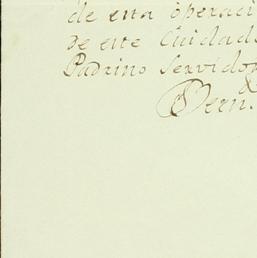 de esta operaci
De este Cuidad
Padrino Servidor
Bern.